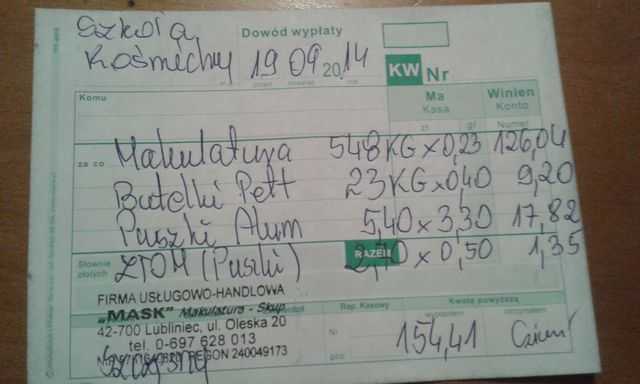 Szkoła Dowód wypłaty
Kośmidry 19 09 2014
KW Nr
Komu Ma Winien
Kasa Konto
zł gr Numer
za co Makulatura 548 KG x 0,23 126,04
Butelki Pett 23 KG x 0,40 9,20
Puszki Alum 5,40 x 3,30 17,82
Słownie złotych ZŁOM (Puszki) RAZEM 2,70 x 0,50 1,35
FIRMA USŁUGOWO-HANDLOWA
„MASK" Makulatura - Skup
42-700 Lubliniec, ul. Oleska 20
tel. 0-697 628 013
REGON 240049173
Rap. Kasowy Kwotę powyższą
Nr
poz. 154,41